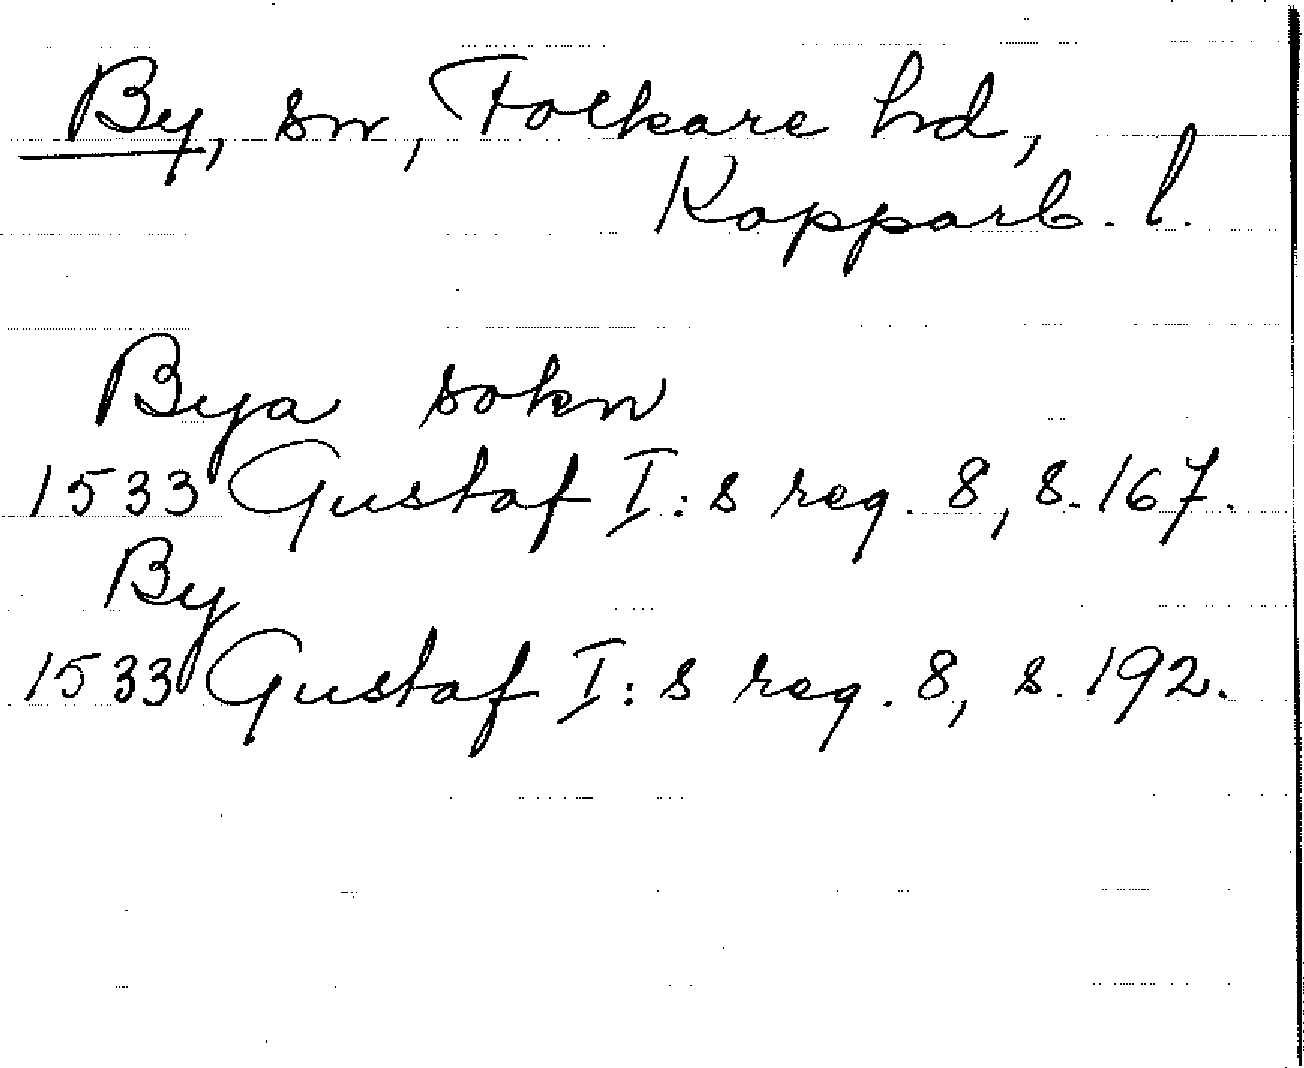 By, sn, Folkare hd,
Kopparb. l.
Bya sokn
1533 Gustaf I:s reg. 8, s. 167.
By
1533 Gustaf I:s reg. 8, s. 192.